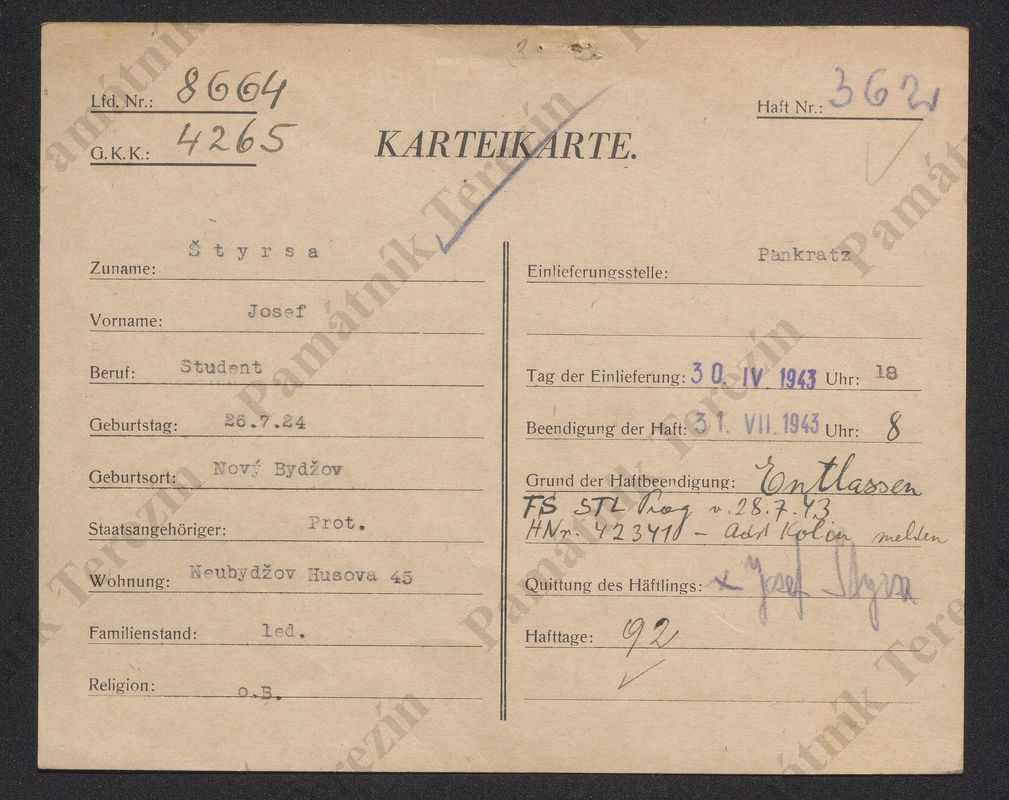 Lfd. Nr.: 8664
Haft Nr.: 362
G.K.K.: 4265
KARTEIKARTE.
Zuname: Štyrsa
Vorname: Josef
Beruf: Student
Geburtstag: 26.7.24
Geburtsort: Nový Bydžov
Staatsangehöriger: Prot.
Wohnung: Neubydžov Husova 45
Familienstand: led.
Religion: o.B.
Einlieferungsstelle: Pankratz
Tag der Einlieferung: 30. IV. 1943 Uhr: 18
Beendigung der Haft: 31. VII. 1943 Uhr: 8
Grund der Haftbeendigung: Entlassen
FS STL Prag v. 28.7.43
HNr. 42341 - Adst Kolin melden
Quittung des Häftlings: x Josef Štyrsa
Hafttage: 92
Památník Terezín